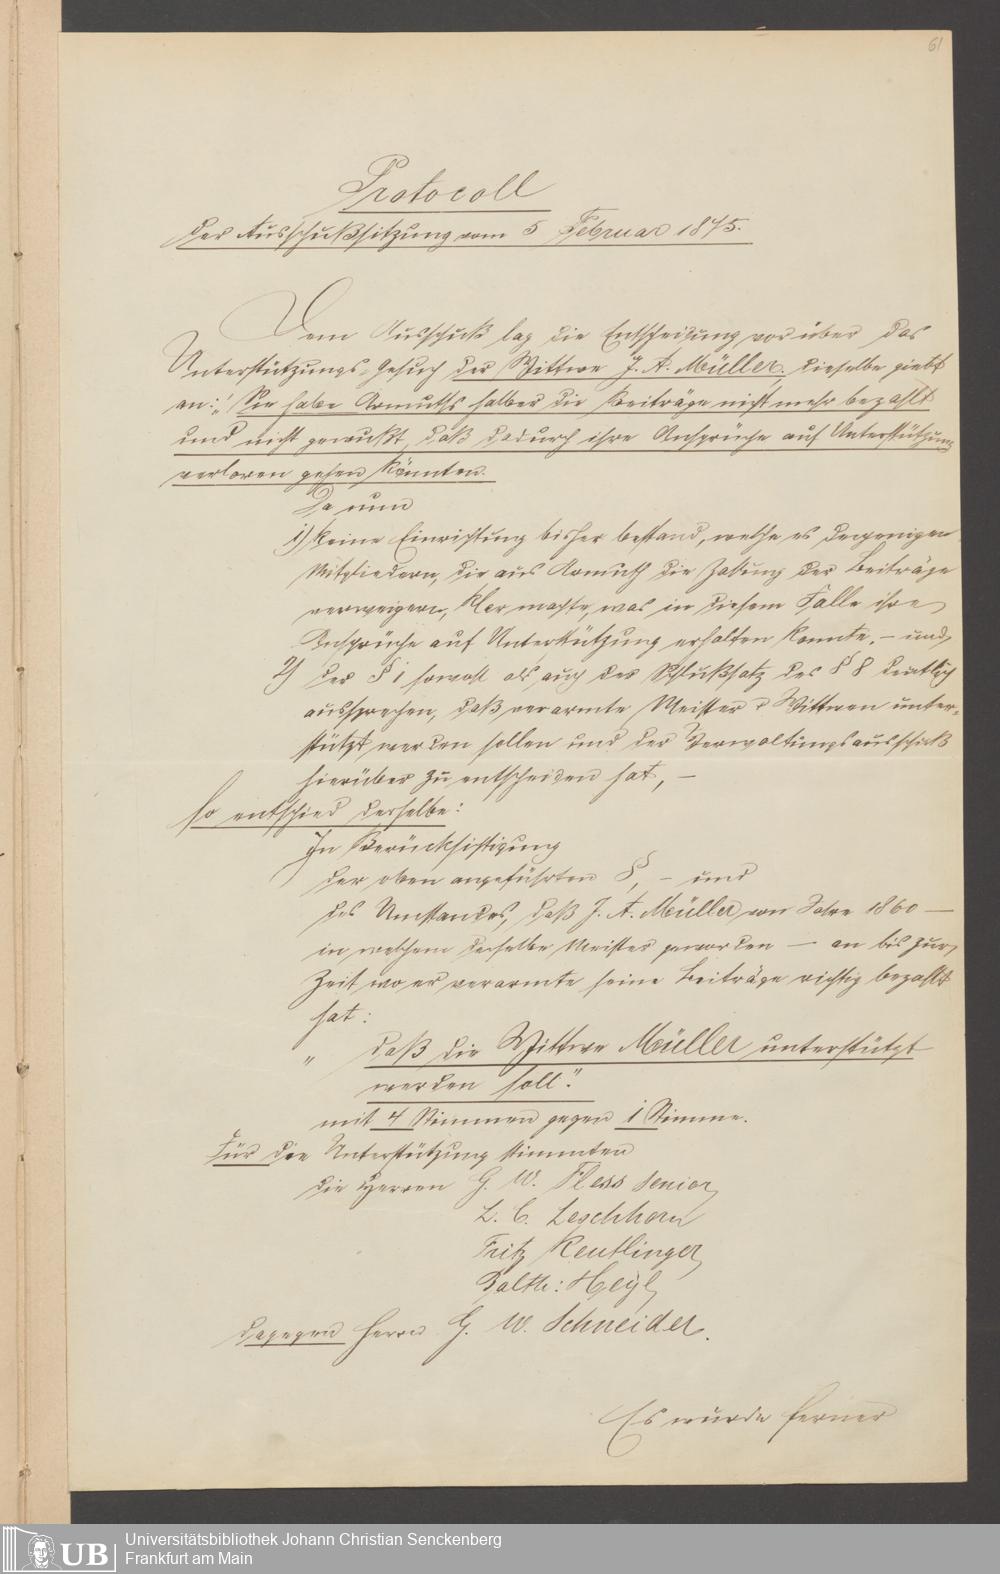 61
Protocoll
der Ausschußsitzung vom 5 Februar 1875.
Dem Ausschuß lag die Entscheidung vor über das
Unterstützungs-Gesuch der Wittwe J. A. Müller. Dieselbe giebt
an: "Sie habe Armuths halber die Beiträge nicht mehr bezahlt
und nicht gewußt, daß dadurch ihre Ansprüche auf Unterstützung
verloren gehen könnten.
Da nun
1) keine Einrichtung bisher bestand, welche es denjenigen
Mitgliedern, die aus Armuth die Zalung der Beiträge
verweigern, klar machte, was in diesem Falle ihre
Ansprüche auf Unterstützung erhalten konnte, – und
2) der § 1 sowohl als auch der Schlußsatz des § 8 deutlich
aussprechen, daß verarmte Meister & Wittwen unter-
stützt werden sollen und der Verwaltungsausschuß
hierüber zu entscheiden hat, –
so entschied derselbe:
In Berücksichtigung
der oben angeführten §, – und
des Umstandes, daß J. A. Müller vom Jahre 1860 —
in welchem derselbe Meister geworden — an bis zur
Zeit wo er verarmte seine Beiträge richtig bezahlt
hat:
" daß die Wittwe Müller unterstützt
werden soll."
mit 4 Stimmen gegen 1 Stimme.
Für die Unterstützung stimmten
die Herren G. W. Fless senior
L. C. Leschhorn
Fritz Reutlinger
Balth: Heyl
dagegen Herrn G. W. Schneider.
Es wurde ferner
UB Universitätsbibliothek Johann Christian Senckenberg
Frankfurt am Main